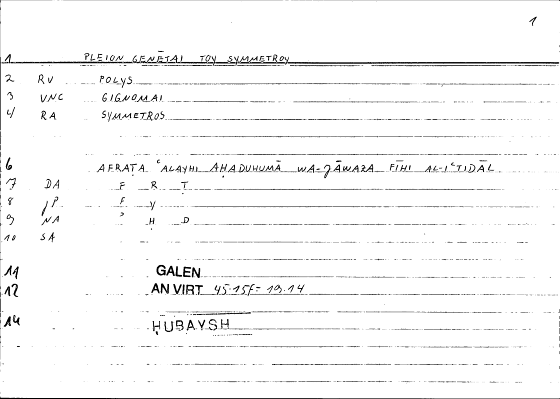 1
1 PLEION GENĒTAI TOY SYMMETROY
2 RV POLYS
3 VNC GIGNOMAI
4 RA SYMMETROS
6 AFRAṬA ʿALAYHI AḤADUHUMĀ WA-ǦĀWAZA FĪHI AL-IʿTIDĀL
7 DA F R Ṭ
8 P F Y
9 NA ʾ Ḥ D
10 SA
11 GALEN
12 AN VIRT 45.15F = 19.14
14 ḤUBAYSH